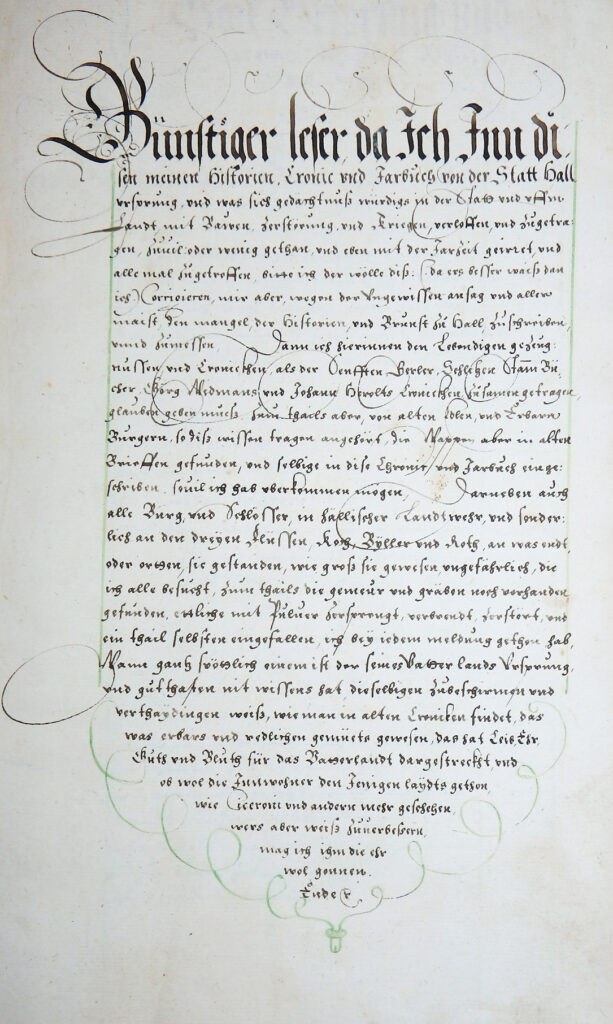 Günstiger leser, da Ich Inn di-
sen meinen Historien, Cronic vnd Jarbuch von der Statt Hall
vrsprung, vnd was sich gedachtnuß würdigs in der Statt vnd vffm
Landt mit Bawen, Zerstörung, vnd Kriegen, verloffen, vnd zugetra-
gen, zuuil: oder wenig gethan, vnd eben mit der Jarzeit geirret, vnd
alle mal zugetroffen, bitte ich der wölle diß: (: da ers besser waiß dan
ich:) Corrigieren, mir aber, wegen der Vngewissen ansag vnd aller
maist, den mangel, der Historien, vnd Brunst zu Hall, zuschreiben,
vnnd zumessen. Dann ich hierinnen den Lebendigen gezeug:
nussen vnd Cronickhen, als der Senfften Berler, Schletzen Stam̃ Bü-
cher, Georg Widmans, vnd Johann Herolts Cronickhen, zusamen getragen,
glauben geben mueß, zum thails aber, von alten Edlen, vnd Erbarn
Burgern, so diß wissen tragen angehört, die Wappen, aber in alten
Brieffen gefunden, vnd selbige in dise Chronic, vnd Jarbuch einge:
schriben, souil ich hab vberkommen mögen, Darneben auch
alle Burg, vnd Schlösser, in Hällischer Landtwehr, vnd sonder:
lich an den dreyen Flussen, Koch, Büller vnd Roth, an was endt,
oder orthen, sie gestanden, wie groß sie gewesen vngefährlich, die
ich alle besucht, zum thails die gemeur vnd gräben noch vorhanden
gefunden, ettliche mit Puluer zersprengt, verbrendt, zerstört, vnd
ein thail selbsten eingefallen, ich bey iedem meldung gethon hab,
Wann gantz spöttlich einem ist der seines Vatterlands Vrsprung,
vnd gutthaten nit wissens hat, dieselbigen zubeschirmen vnd
verthaydingen weiß, wie man in alten Cronicken findet, das
was erbars vnd redlichen gemüets gewesen, das hat Leib, Ehr,
Guth vnd Bluth für das Vatterlandt dargestreckht, vnd
ob wol die Innwohner den Jenigen laydts gethon,
wie Ciceroni vnd andern mehr geschehen,
wers aber weiß zuuerbessern,
mag ich ihm die ehr
wol gonnen.
Ende